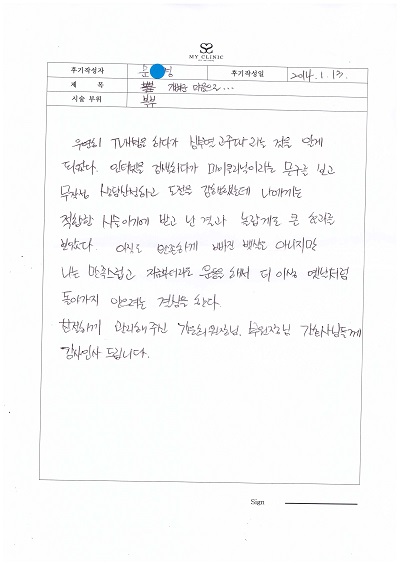 MY CLINIC
후기작성자 윤 경 후기작성일 2014. 1. 13.
제 목 가벼운 마음으로...
시술 부위 복부
우연히 TV채널을 하다가 심부연 고주파 라는 것을 알게
되었다. 인터넷을 검색하다가 마이클리닉이라는 문구를 보고
무작정 상담신청하고 도전을 감행했는데 나에게는
적합한 시술이기에 받고 난 결과 놀랍게도 큰 효과를
보았다. 아직도 만족하게 빠진 뱃살은 아니지만
나는 만족스럽고 지금부터라도 운동을 해서 더 이상 옛날처럼
돌아가지 않으려는 결심을 한다.
친절하게 관리해주신 원장님, 부원장님 간호사님들께
감사인사 드립니다.
Sign